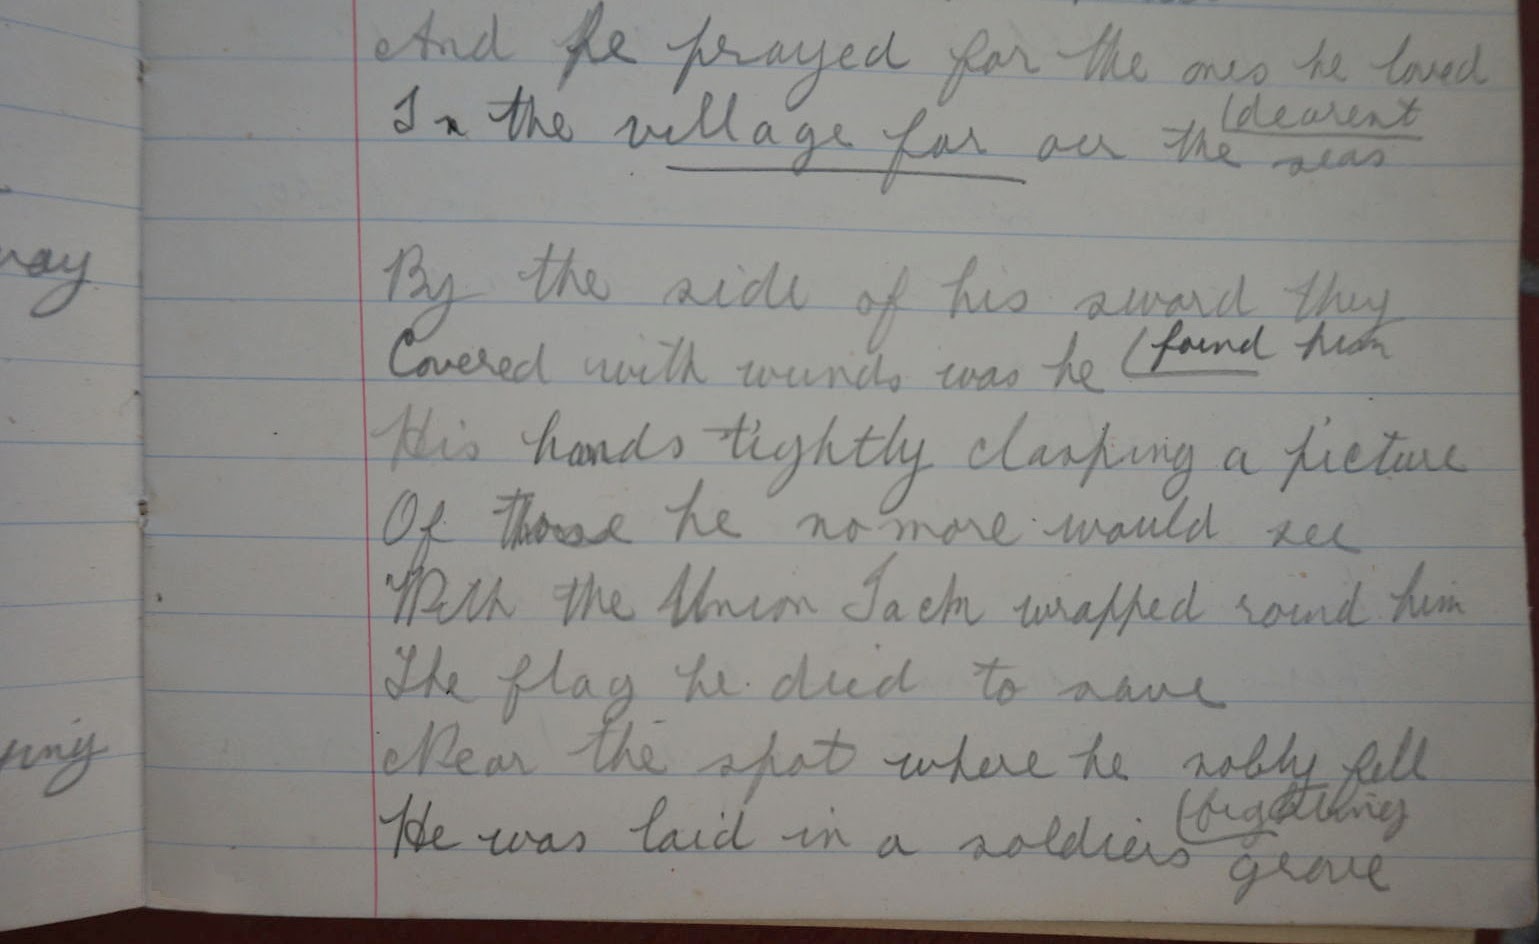 And he prayed for the ones he loved
(dearest
In the village far oer the seas
By the side of his sword they
(found him
Covered with wunds was he
His hands tightly clasping a picture
Of those he no more would see
With the Union Jack wrapped round him
The flag he died to save
Near the spot where he nobly fell
(fighting
He was laid in a soldiers grave
way
ying